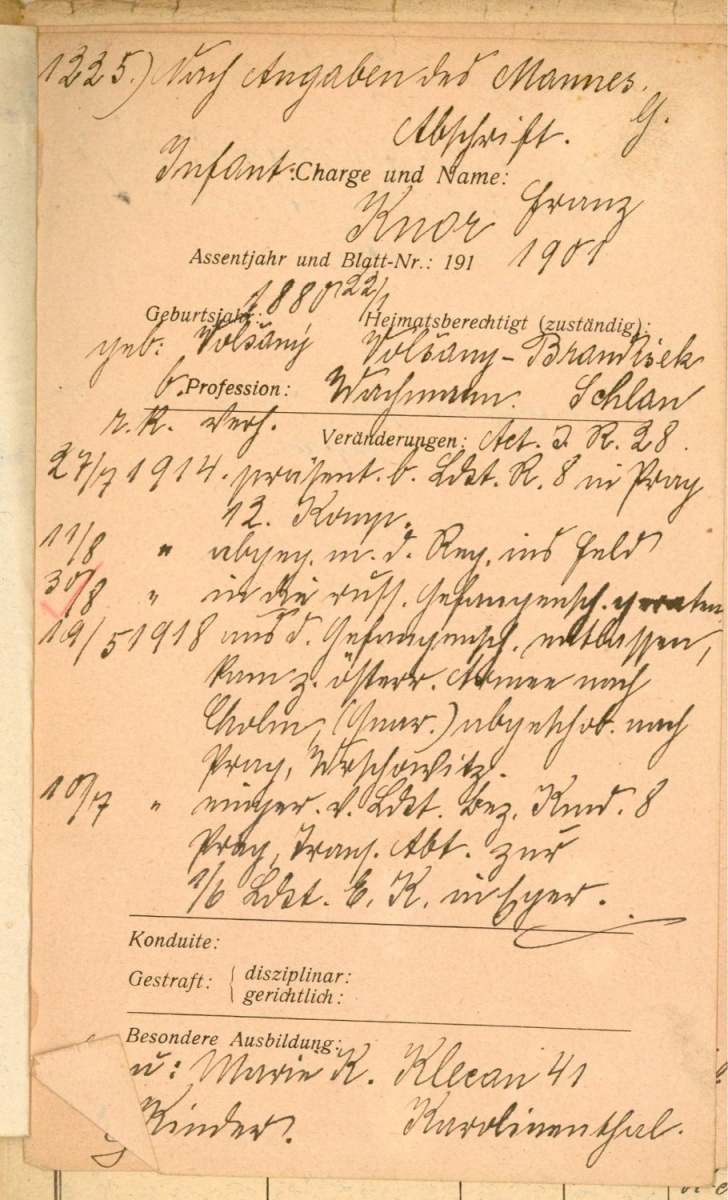 1225.) Nach Angaben des Mannes.
Abschrift. G.
Infant. Charge und Name:
Knor Franz
Assentjahr und Blatt-Nr.: 191 1901
1880 22/1
Geburtsjahr: Heimatsberechtigt (zuständig):
geb: Volšany Volšany - Brandísek
b. Profession: Wachmann. Schlan
r. k. verh.
Veränderungen: Act. I. R. 28.
27/7 1914. präsent. b. Ldst. R. 8 in Prag
12. Komp.
11/8 " abgeg. m. d. Reg. ins Feld
30/8 " in die russ. Gefangensch. geraten
19/5 1918 aus d. Gefangensch. entlassen,
kam z. österr. Armee nach
Cholm, (Quar.) abgeschob. nach
Prag, Wrschowitz.
10/7 " einger. v. Ldst. Bez. Kmd. 8
Prag, Trans. Abt. zur
1/6 Ldst. E. K. in Eger.
Konduite:
Gestraft: { disziplinar:
gerichtlich:
Besondere Ausbildung:
u: Marie K. Klecan 41
Kinder. Karolinenthal.